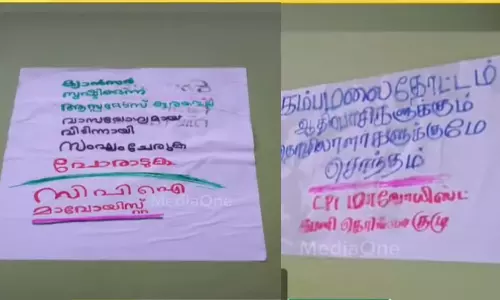 ക്യാൻസർ
സൃഷ്ടിക്കുന്ന
വാസയോഗ്യമായ
വീടിന്നായി
സംഘംചേരുക
പോരാടുക
സി പി ഐ
മാവോയിസ്റ്റ്
MediaOne
கம்பமலைதோட்டம்
ஆதிவாசிகளுக்கும்
தொழிலாளர்களுக்குமே
சொந்தம்
CPI மாவோயிஸ்ட்
MediaOne